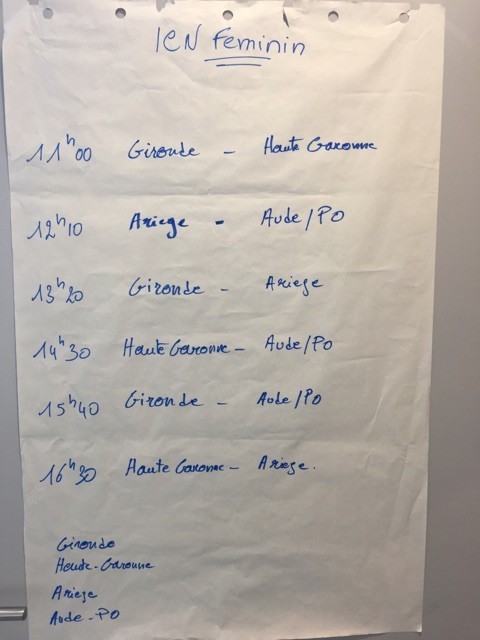 ICN Feminin
11h00 Gironde - Haute Garonne
12h10 Ariege - Aude/PO
13h20 Gironde - Ariege
14h30 Haute Garonne - Aude/PO
15h40 Gironde - Aude/PO
16h30 Haute Garonne - Ariege.
Gironde
Haute-Garonne
Ariege
Aude-PO